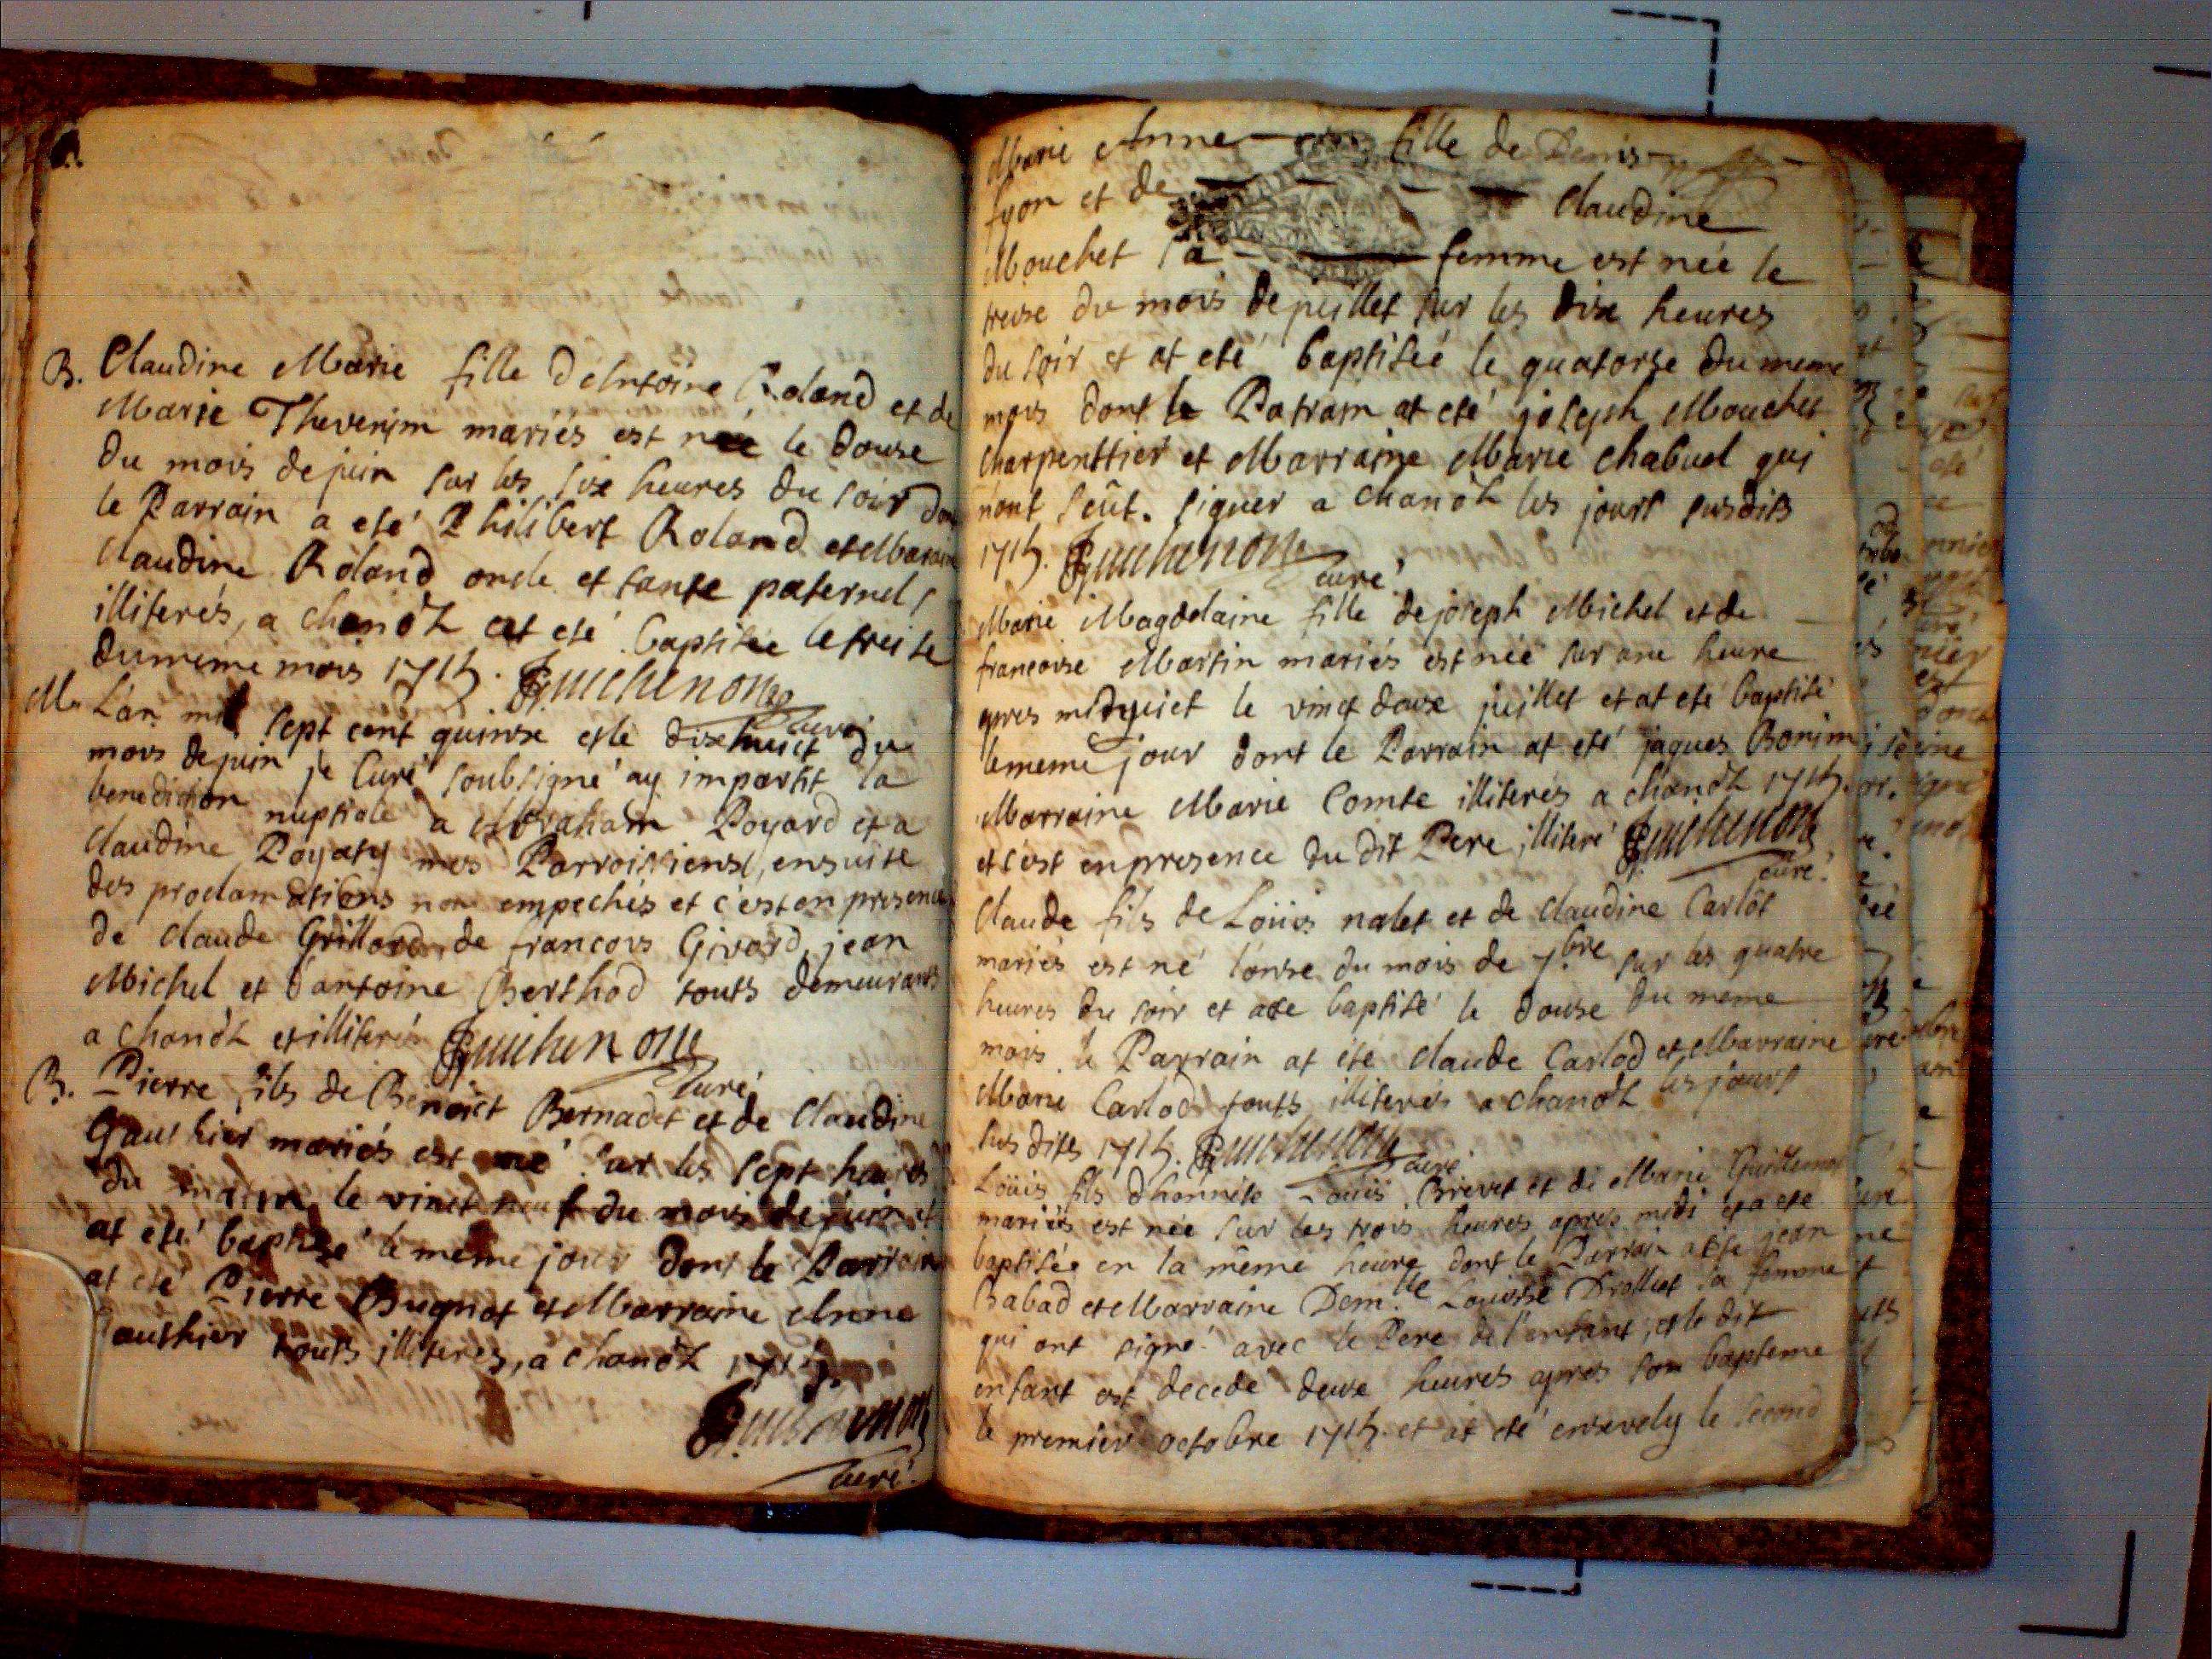 B. Claudine Marie fille d'Antoine Roland et de
Marie Thevenin mariés est née le douse
du mois de juin sur les six heures du soir dont
le Parrain a eté Philibert Roland et Maraine
Claudine Roland oncle et tante paternels
illiterés, a chanoz at eté baptisée le treise
du meme mois 1715. Guichenon
curé
M. L'an mil sept cent quinse et le dixhuict du
mois de juin je Curé soubsigné ay impartit la
benediction nuptiale a Abraham Poyard et a
Claudine Poyaty mes Parroissiens, ensuite
des proclamations non empechés et c'est en presence
de Claude Grillard, de francois Girard, jean
Michel et d'antoine Berthod touts demeurants
a chanoz et illiterés Guichenon
curé
B. Pierre fils de Benoict Bernadet et de Claudine
Gauthier mariés est né sur les sept heures
du matin le vinct neuf du mois de juin et
at eté baptisé le meme jour dont le Parrain
at eté Pierre Bugnot et Marraine Anne
Gauthier touts illiterés, a chanoz 1715.
Guichenon
curé
Marie Anne fille de Denis
fyon et de Claudine
Mouchet sa femme est née le
treise du mois de juillet sur les dix heures
du soir et at eté baptisée le quatorse du meme
mois dont le Patrain at eté joseph Mouchet
charpenttier et Marraine Marie chabuel qui
n'ont sçût signer a chanoz les jours susdits
1715. Guichenon
curé
Marie Magdelaine fille de joseph Michel et de
francoise Martin mariés est née sur une heure
apres midy et le vinct douse juillet et at eté baptisé
le meme jour dont le Parrain at eté jaques Bonin
Marraine Marie Comte illiterés a chanoz 1715.
et c'est en presence du dit Pere illiteré Guichenon
curé
Claude fils de Loüis nalet et de Claudine Carlôt
mariés est né l'onse du mois de 7.bre sur les quatre
heures du soir et a eté baptisé le douse du meme
mois le Parrain at eté Claude Carlod et Marraine
Marie Carlod touts illiterés a chanoz les jours
sus dits 1715. Guichenon
curé
Loüis fils d'honnéte Loüis Brevet et de Marie Guillemot
mariés est née sur les trois heures apres midi et a eté
baptisée en la même heure dont le Parrain a eté jean
Babad et Marraine Dem.lle Louisse Drollet sa femme
qui ont signé avec le Pere de l'enfant, et le dit
enfant est decedé deux heures apres son bapteme
le premier octobre 1715. et at eté ensevely le second